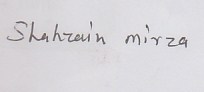 Shahzain mirza